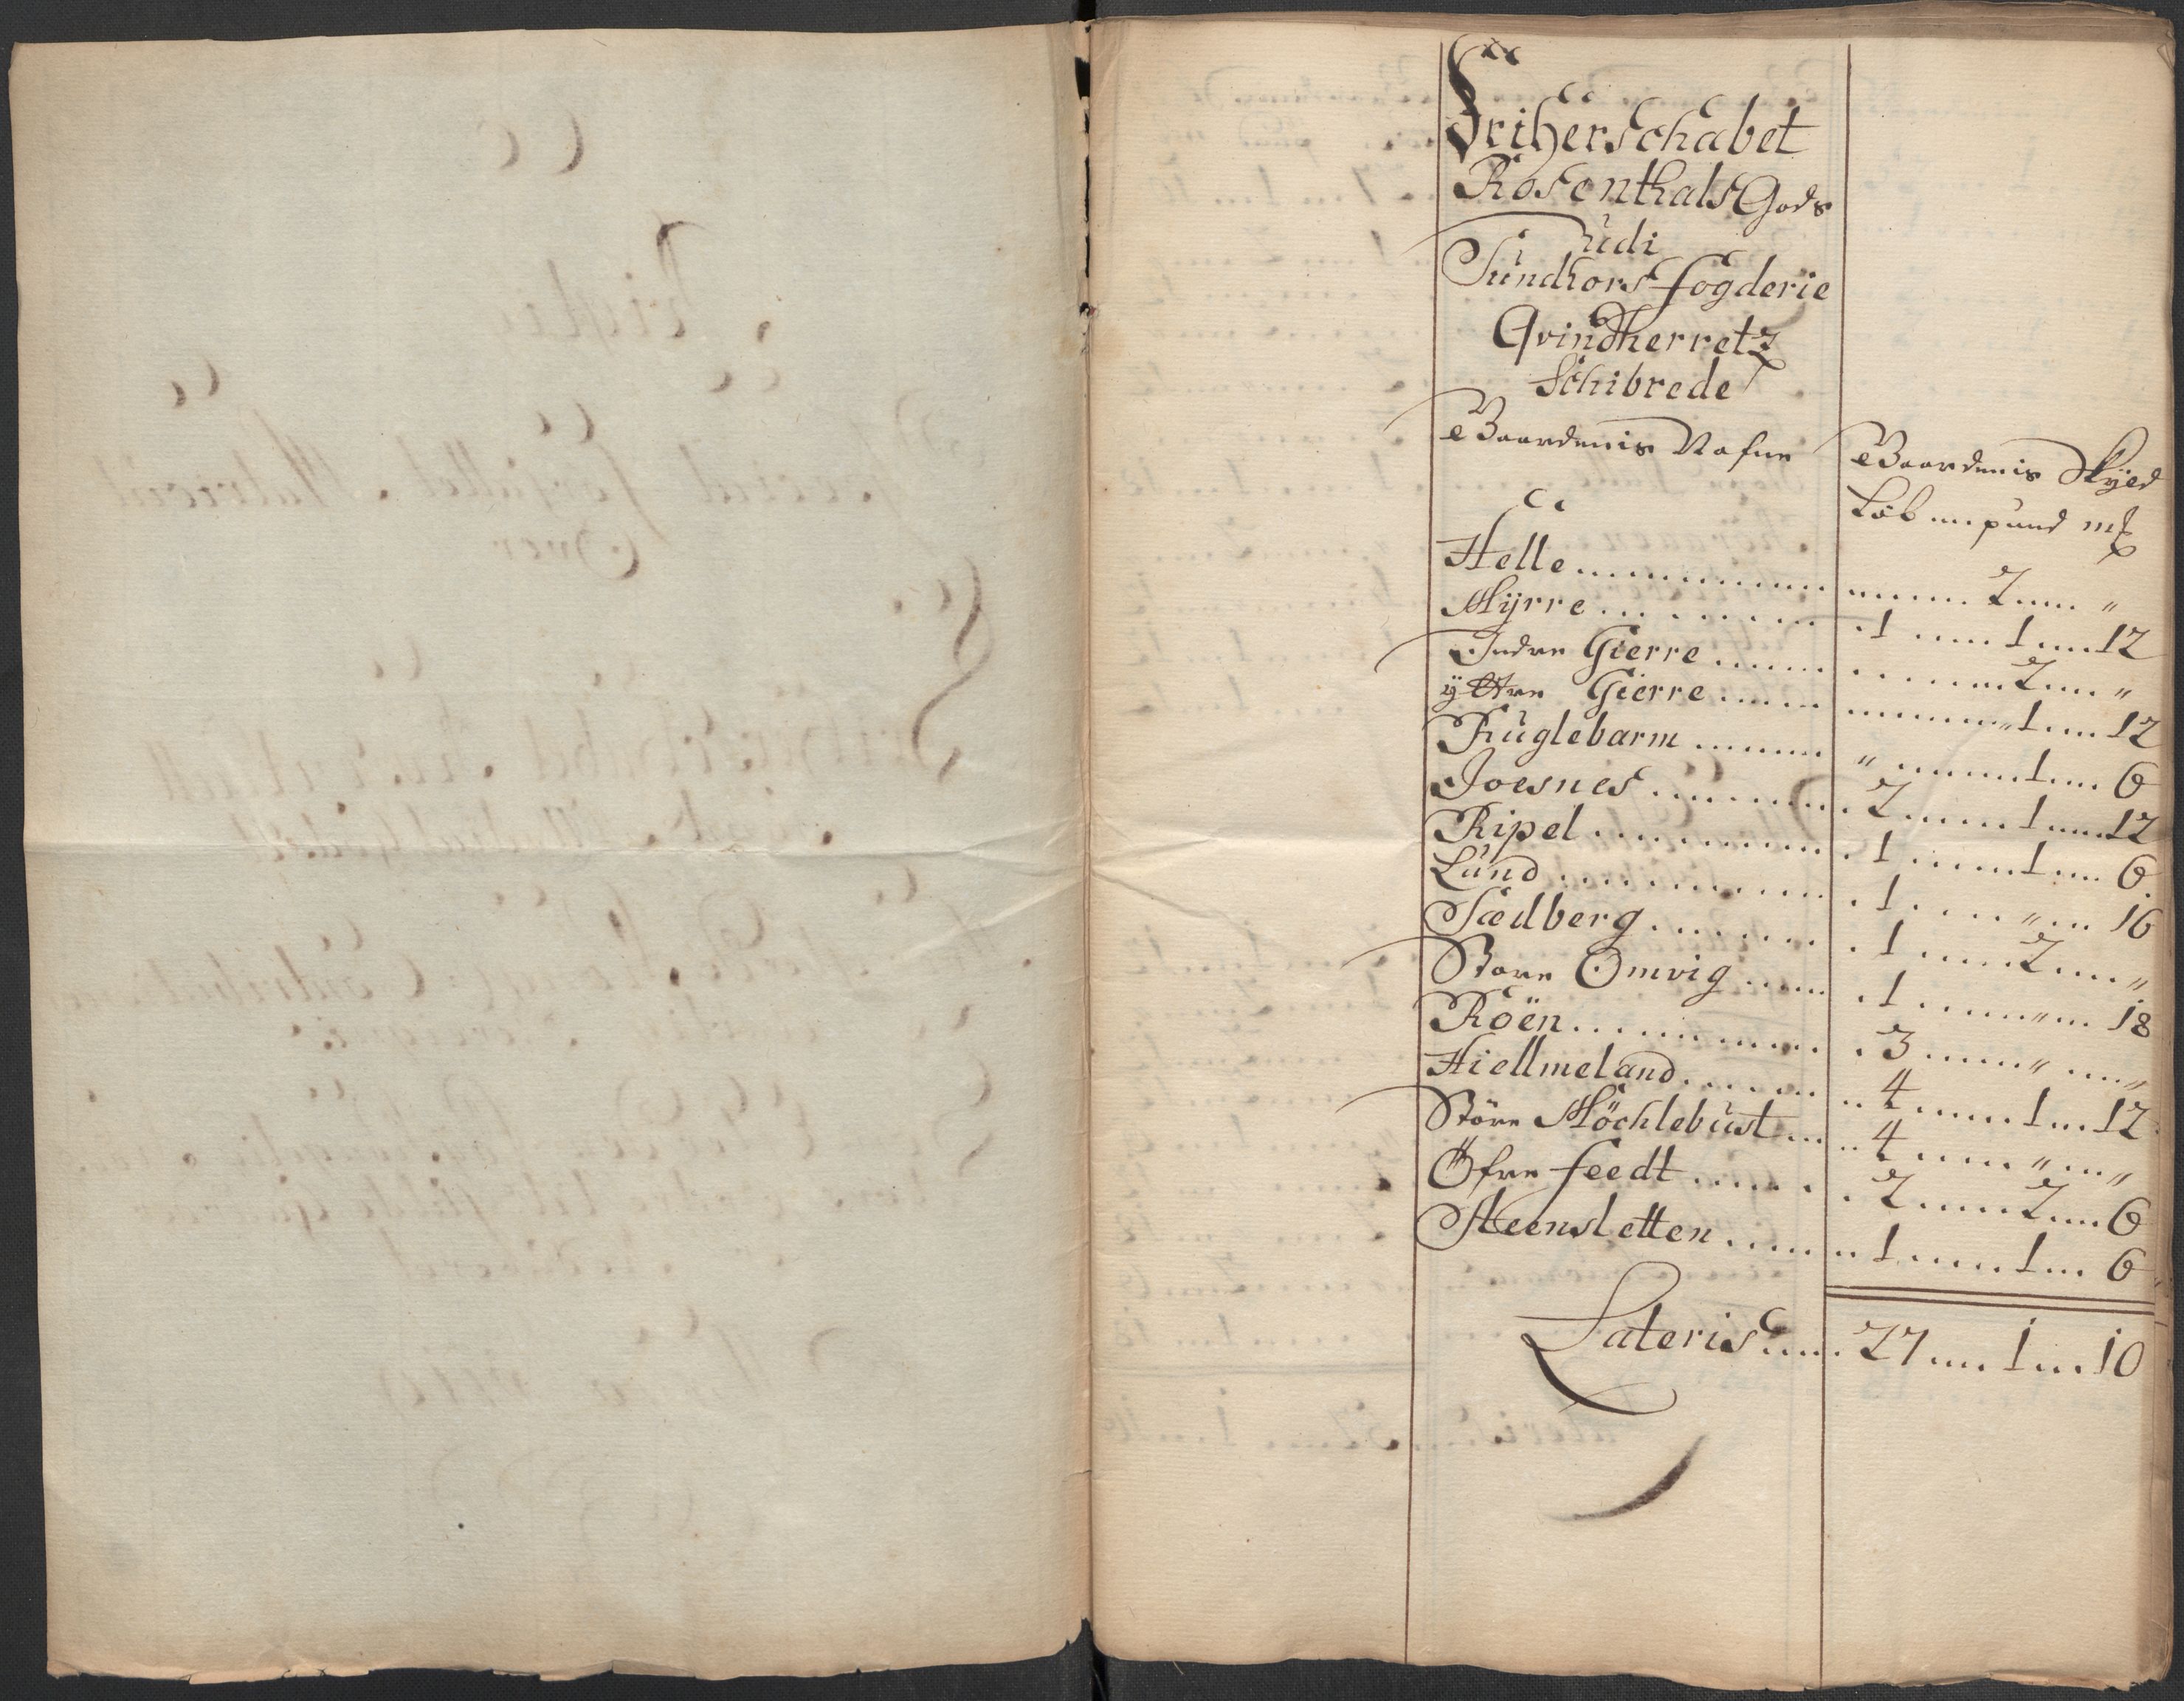 Friherschabet
Rosenthals Gods
udi
Sundhors fogderie
Qvindherretz
Schibrede
Gaardenis Nafne Gaardenis Skyld
Løb .... pund m&
Helle .... 2 .... "
Myrre .... 1 .... 1 .... 12
Indre Gierre .... 2 .... "
ÿttre Gierre .... " 1 .... 12
Kuglebarm .... " .... 1 .... 6
Joesnes .... 2 .... 1 .... 12
Ripel .... 1 .... 1 .... 6
Lund .... 1 .... " .... 16
Sædberg .... 1 .... 2 .... "
Store Omvig .... 1 .... " .... 18
Röen .... 3 .... " .... "
Hiellmeland .... 4 .... 1 .... 12
Störe Möchlebust .... 4 .... " .... "
Öfre feedt .... 2 .... 2 .... 6
Steensletten .... 1 .... 1 .... 6
Lateris .... 27 .... 1 .... 10